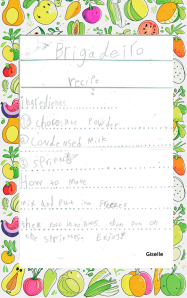 Brigadeiro
recipe
Ingredients
① chocolate powder
② Condensed milk
③ sprinkles
How to make
mix and put in freezer
then put
the sprinkles. Enjoy
Giselle